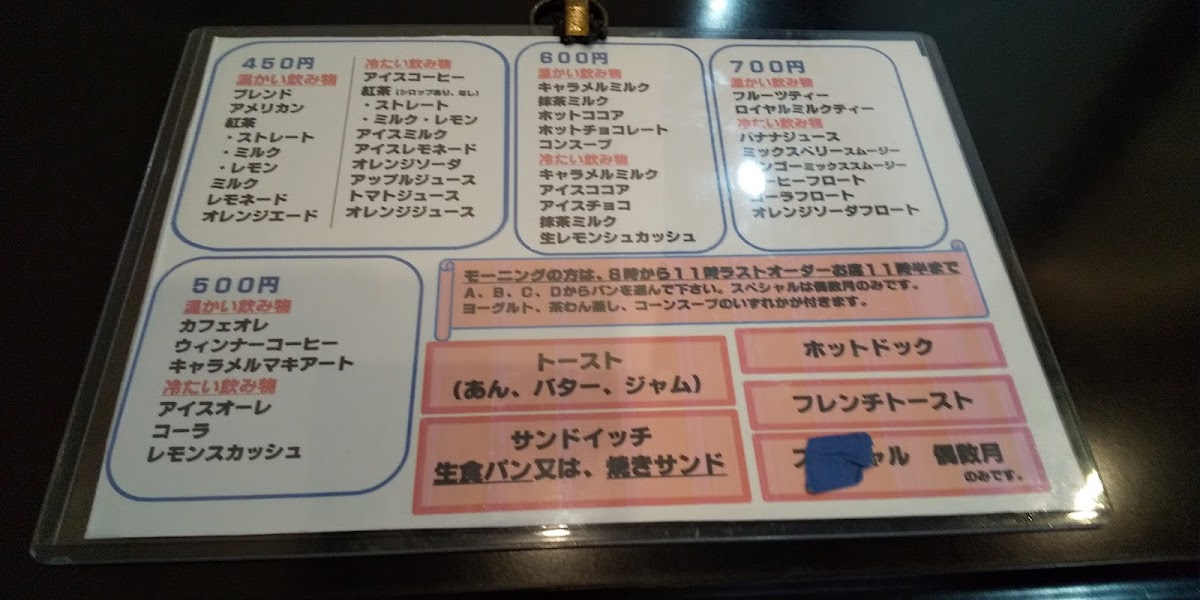 450円
温かい飲み物
ブレンド
アメリカン
紅茶
・ストレート
・ミルク
・レモン
ミルク
レモネード
オレンジエード
冷たい飲み物
アイスコーヒー
紅茶（シロップあり、なし）
・ストレート
・ミルク・レモン
アイスミルク
アイスレモネード
オレンジソーダ
アップルジュース
トマトジュース
オレンジジュース
600円
温かい飲み物
キャラメルミルク
抹茶ミルク
ホットココア
ホットチョコレート
コンスープ
冷たい飲み物
キャラメルミルク
アイスココア
アイスチョコ
抹茶ミルク
生レモンシュカッシュ
700円
温かい飲み物
フルーツティー
ロイヤルミルクティー
冷たい飲み物
バナナジュース
ミックスベリースムージー
ンゴーミックススムージー
ーヒーフロート
コーラフロート
オレンジソーダフロート
500円
温かい飲み物
カフェオレ
ウィンナーコーヒー
キャラメルマキアート
冷たい飲み物
アイスオーレ
コーラ
レモンスカッシュ
モーニングの方は、8時から11時ラストオーダーお席11時半まで
A、B、C、Dからパンを選んで下さい。スペシャルは偶数月のみです。
ヨーグルト、茶わん蒸し、コーンスープのいずれかが付きます。
トースト
（あん、バター、ジャム）
サンドイッチ
生食パン又は、焼きサンド
ホットドック
フレンチトースト
ャル 偶数月
のみです。